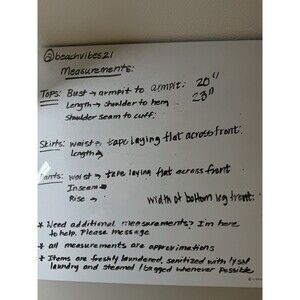 @beachvibes21
Measurements:
Tops: Bust → armpit to armpit: 20"
Length → shoulder to hem 23"
Shoulder seam to cuff:
Skirts: waist → tape laying flat across front:
Length
Pants: waist → tape laying flat across front
Inseam
Rise → width of bottom leg front:
* Need additional measurements? I'm here
to help. Please message
* all measurements are approximations
* Items are freshly laundered, sanitized with lysol
laundry and steamed / bagged whenever possible